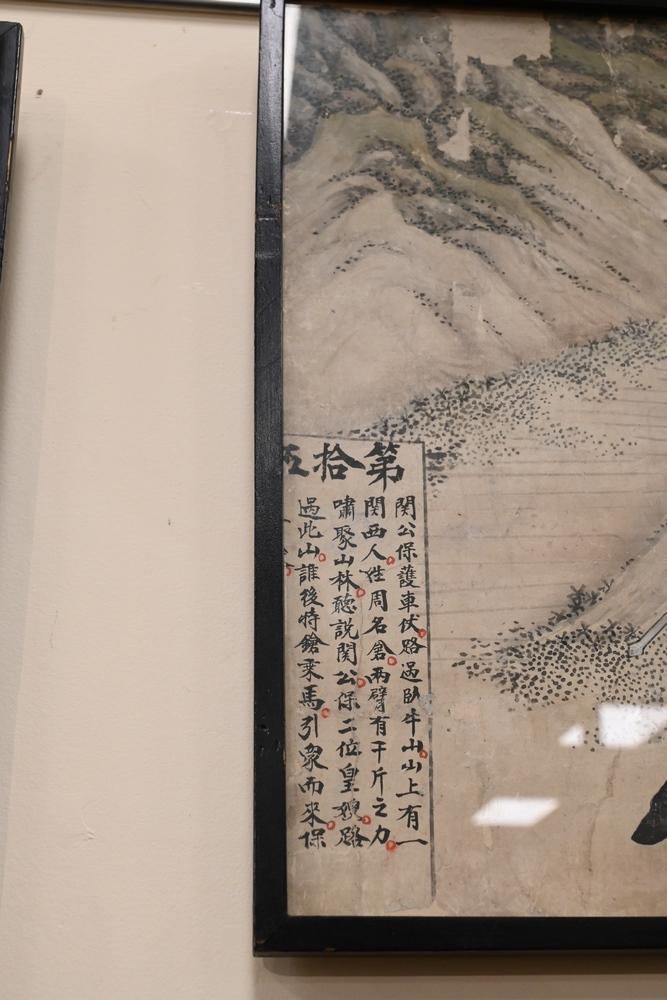 第拾五
関公保護車伏路過臥牛山山上有一
関西人姓周名倉兩臂有千斤之力
嘯聚山林聽說関公保二位皇嫂路
過此山誰後恃鎗乘馬引衆而來保